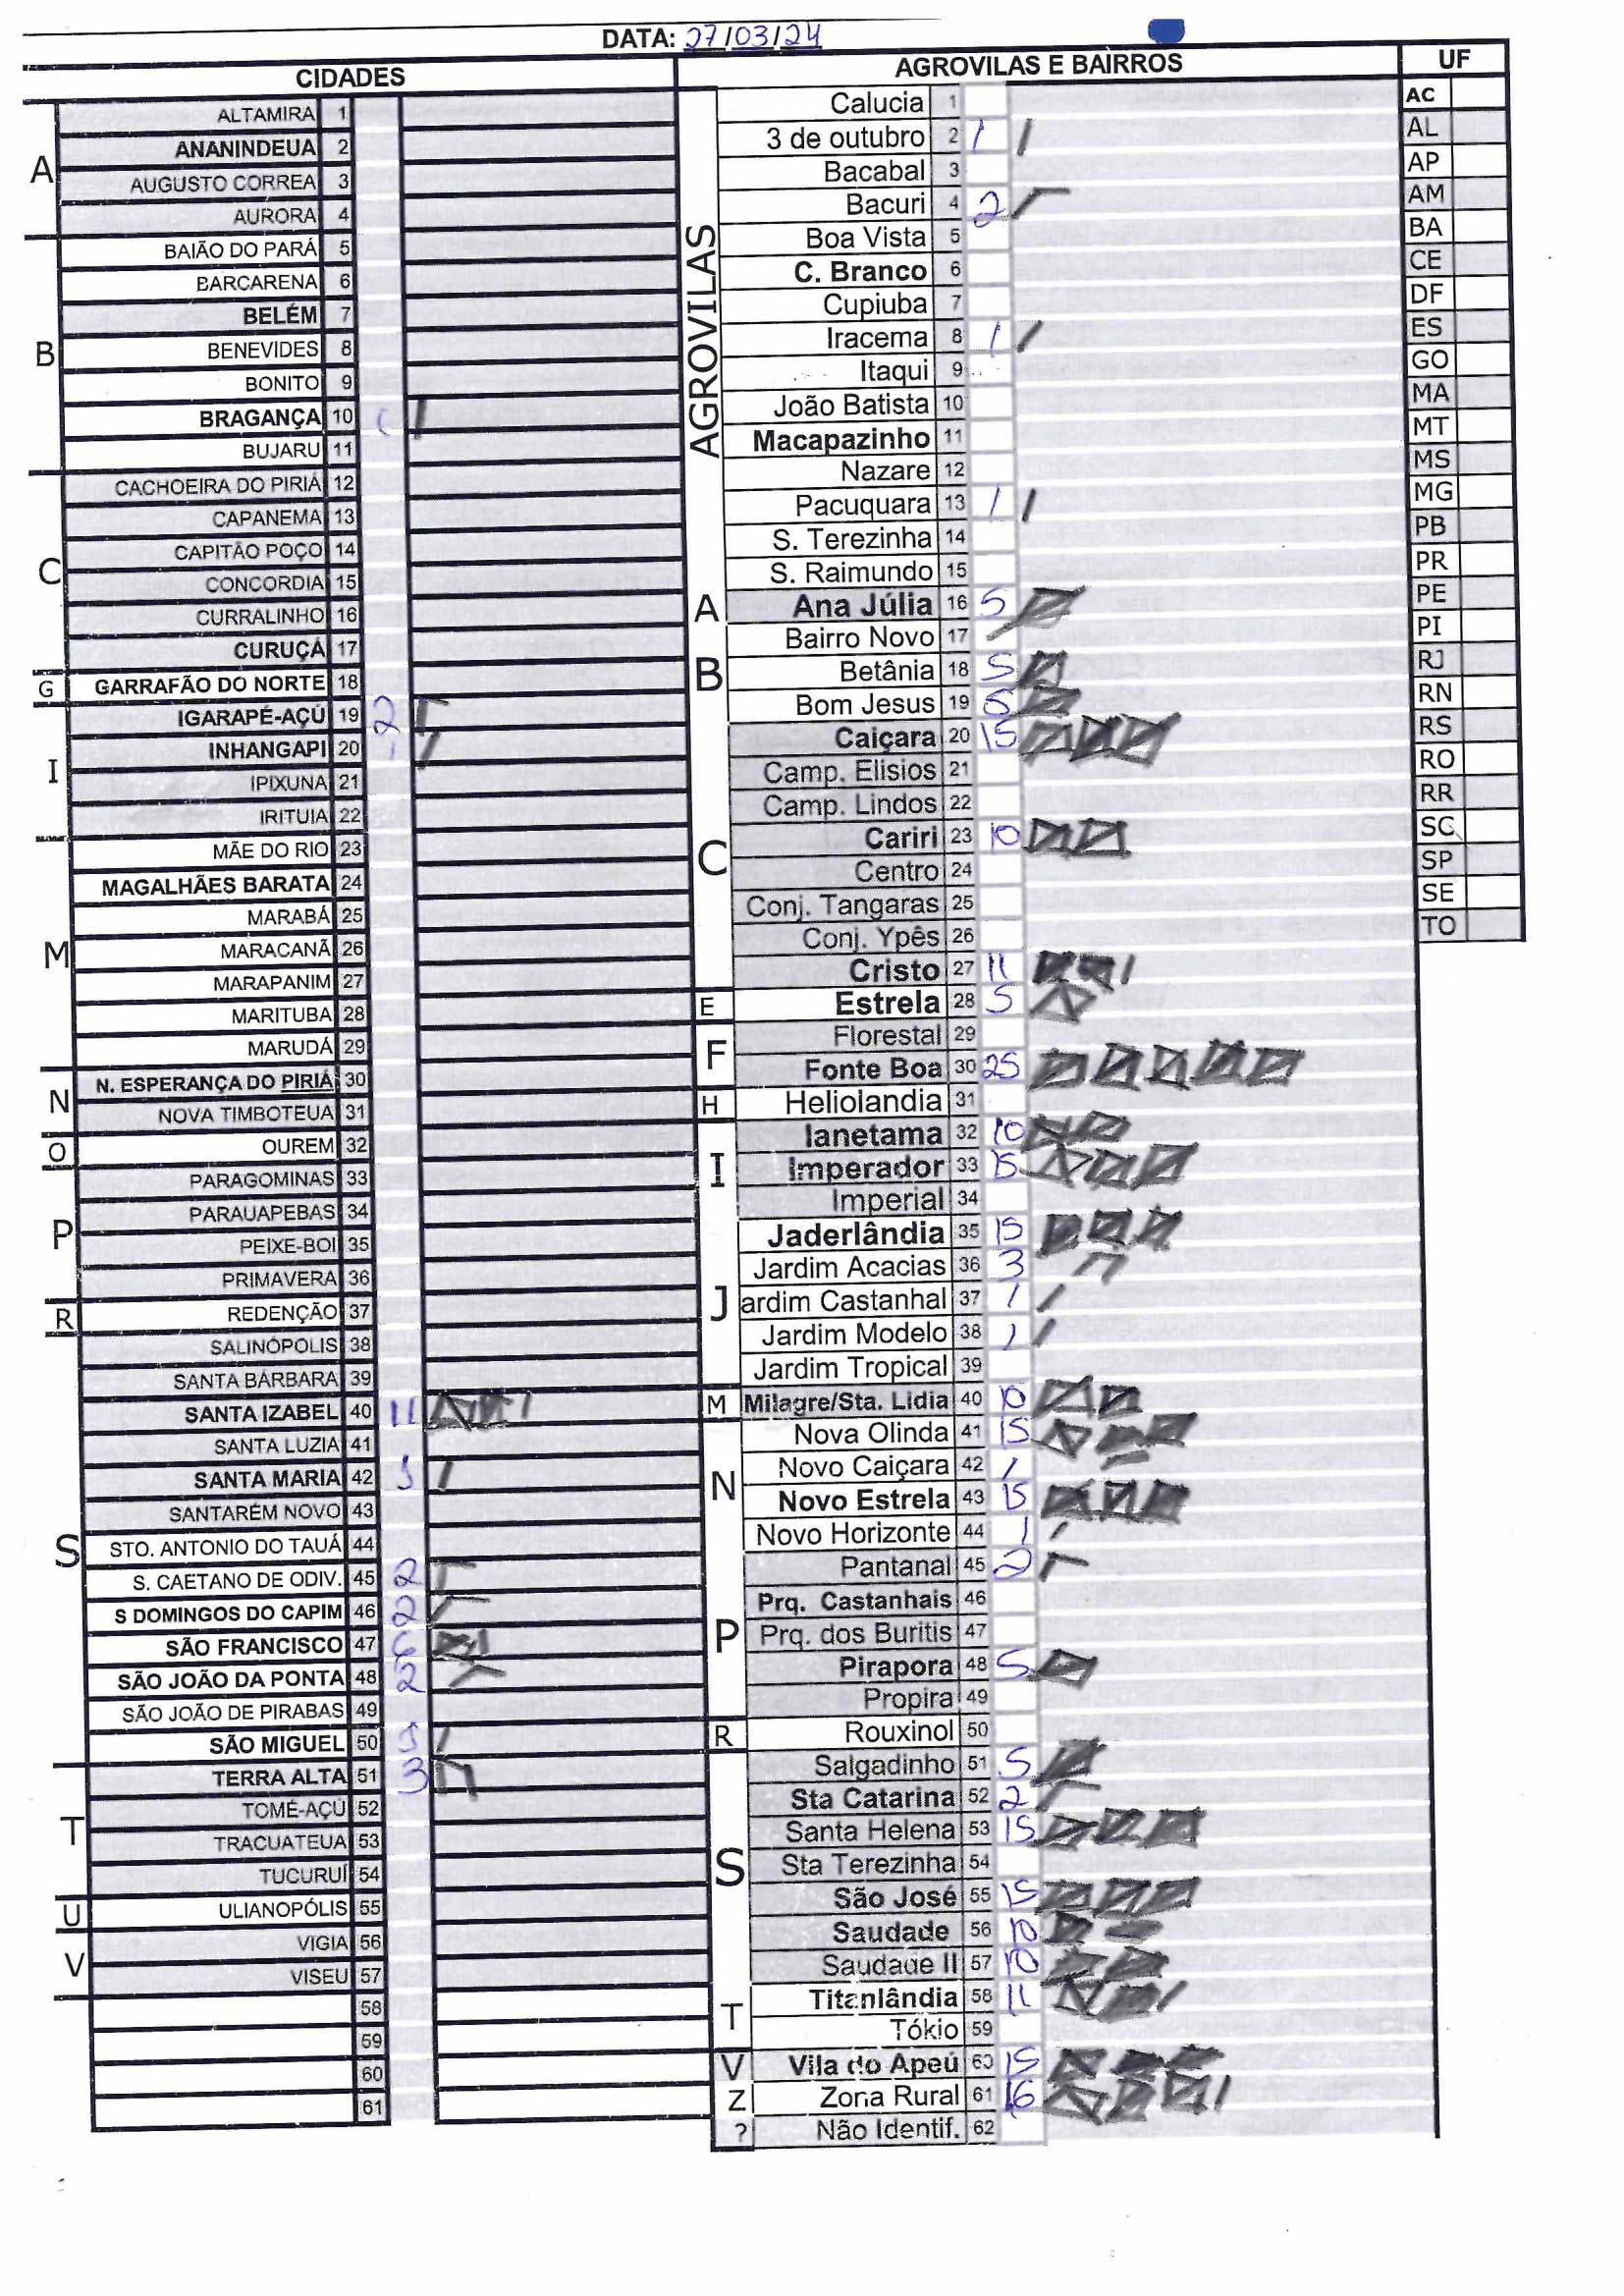 DATA: 27/03/24
CIDADES
A
ALTAMIRA 1
ANANINDEUA 2
AUGUSTO CORREA 3
AURORA 4
B
BAIÃO DO PARÁ 5
BARCARENA 6
BELÉM 7
BENEVIDES 8
BONITO 9
BRAGANÇA 10 1
BUJARU 11
C
CACHOEIRA DO PIRIÁ 12
CAPANEMA 13
CAPITÃO POÇO 14
CONCORDIA 15
CURRALINHO 16
CURUÇÁ 17
G GARRAFÃO DO NORTE 18
I
IGARAPÉ-AÇÚ 19 2
INHANGAPI 20 1
IPIXUNA 21
IRITUIA 22
M
MÃE DO RIO 23
MAGALHÃES BARATA 24
MARABÁ 25
MARACANÃ 26
MARAPANIM 27
MARITUBA 28
MARUDÁ 29
N
N. ESPERANÇA DO PIRIÁ 30
NOVA TIMBOTEUA 31
O OUREM 32
P
PARAGOMINAS 33
PARAUAPEBAS 34
PEIXE-BOI 35
PRIMAVERA 36
R REDENÇÃO 37
S
SALINÓPOLIS 38
SANTA BÁRBARA 39
SANTA IZABEL 40 11
SANTA LUZIA 41
SANTA MARIA 42 1
SANTARÉM NOVO 43
STO. ANTONIO DO TAUÁ 44
S. CAETANO DE ODIV. 45 2
S DOMINGOS DO CAPIM 46 2
SÃO FRANCISCO 47 6
SÃO JOÃO DA PONTA 48 2
SÃO JOÃO DE PIRABAS 49
SÃO MIGUEL 50 1
T
TERRA ALTA 51 3
TOMÉ-AÇÚ 52
TRACUATEUA 53
TUCURUÍ 54
U ULIANOPÓLIS 55
V
VIGIA 56
VISEU 57
58
59
60
61
AGROVILAS E BAIRROS
AGROVILAS
Calucia 1
3 de outubro 2 1
Bacabal 3
Bacuri 4 2
Boa Vista 5
C. Branco 6
Cupiuba 7
Iracema 8 1
Itaqui 9
João Batista 10
Macapazinho 11
Nazare 12
Pacuquara 13 1
S. Terezinha 14
S. Raimundo 15
A Ana Júlia 16 5
B
Bairro Novo 17
Betânia 18 5
Bom Jesus 19 5
C
Caiçara 20 15
Camp. Elisios 21
Camp. Lindos 22
Cariri 23 10
Centro 24
Conj. Tangaras 25
Conj. Ypês 26
Cristo 27 11
E Estrela 28 5
F
Florestal 29
Fonte Boa 30 25
H Heliolandia 31
I
Ianetama 32 10
Imperador 33 15
Imperial 34
J
Jaderlândia 35 15
Jardim Acacias 36 3
ardim Castanhal 37 1
Jardim Modelo 38 1
Jardim Tropical 39
M Milagre/Sta. Lidia 40 10
N
Nova Olinda 41 15
Novo Caiçara 42 1
Novo Estrela 43 15
Novo Horizonte 44 1
P
Pantanal 45 2
Prq. Castanhais 46
Prq. dos Buritis 47
Pirapora 48 5
Propira 49
R Rouxinol 50
S
Salgadinho 51 5
Sta Catarina 52 2
Santa Helena 53 15
Sta Terezinha 54
São José 55 15
Saudade 56 10
Saudade II 57 10
T
Titanlândia 58 11
Tókio 59
V Vila do Apeú 60 15
Z Zona Rural 61 16
? Não Identif. 62
UF
AC
AL
AP
AM
BA
CE
DF
ES
GO
MA
MT
MS
MG
PB
PR
PE
PI
RJ
RN
RS
RO
RR
SC
SP
SE
TO